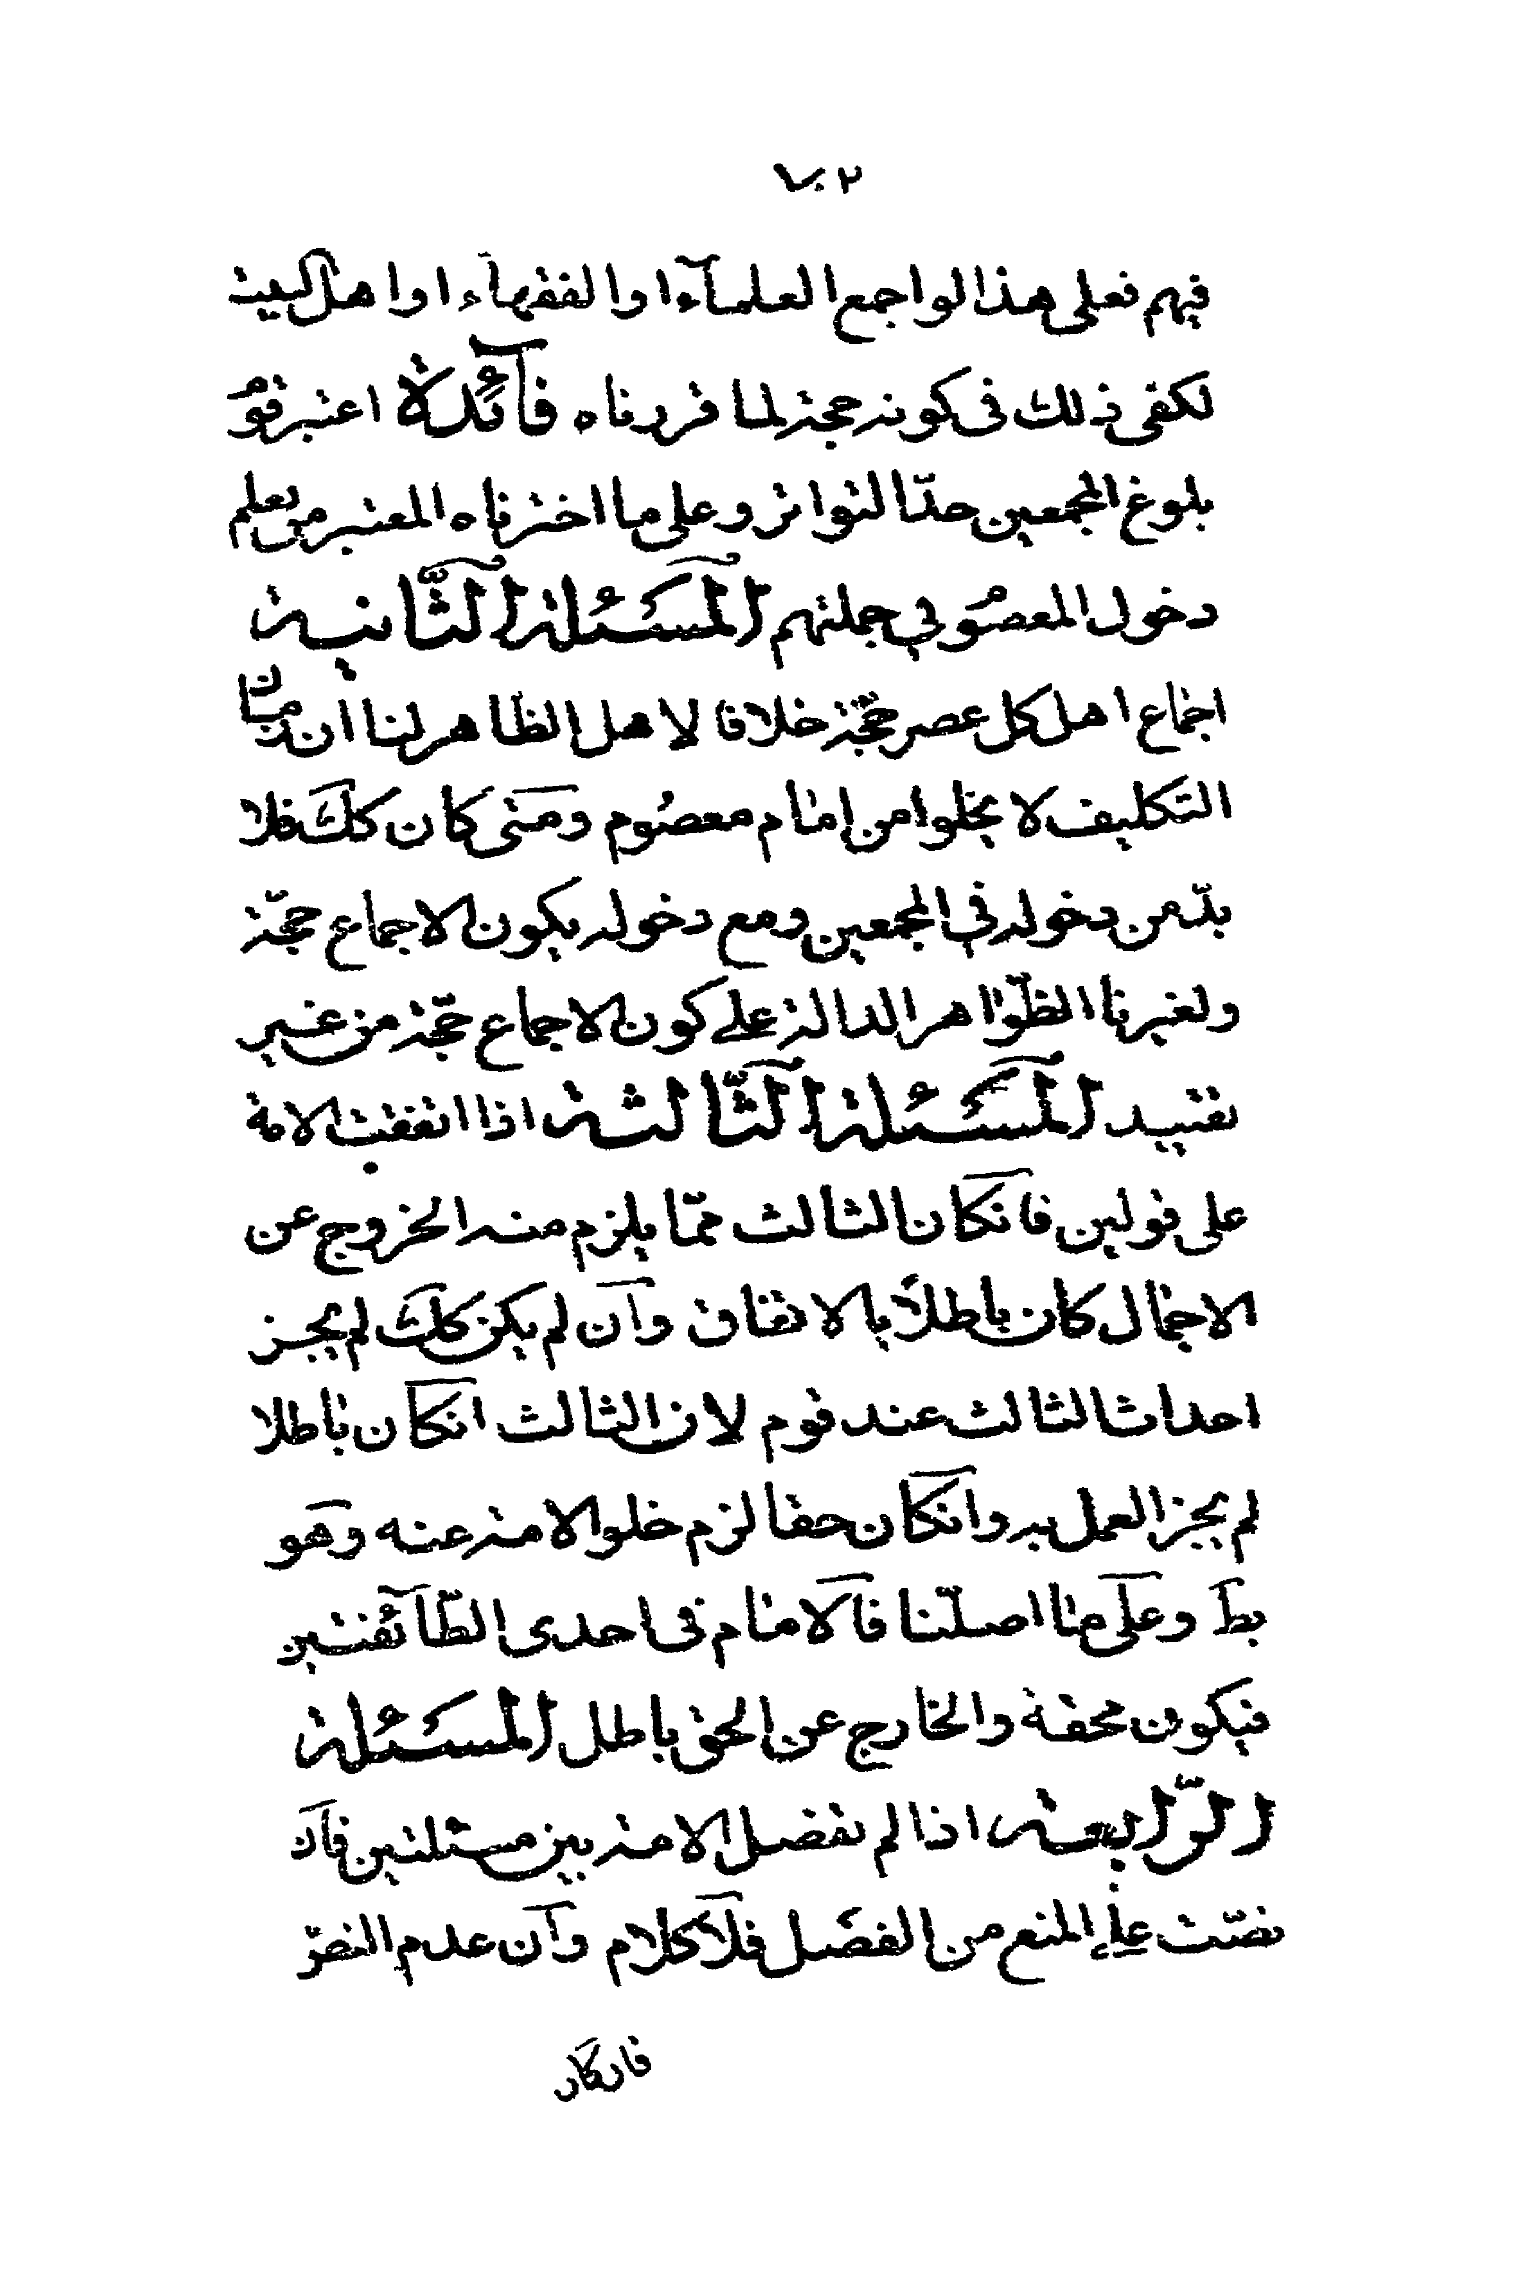 فيهم فعلى هذا لو اجمع العلماء او الفقهاء او اهل البيت
لكفى ذلك في كونه حجة لما قررناه فآئدة اعتبر قوم
بلوغ المجمعين حدّ التواتر وعلى ما اخترناه المعتبر من يعلم
دخول المعصوم في جملتهم المسئلة الثّانية
اجماع اهل كل عصر حجّة خلافا لاهل الظاهر لنا ان زمان
التكليف لا يخلوا من إمام معصُوم ومتى كان كك فلا
بدّ من دخوله في المجمعين ومع دخوله يكون الاجماع حجّة
ولغيرنا الظّواهر الدالة على كون الاجماع حجّة من غير
تقييد المسئلة الثّالثة اذا اتفقت الامة
على قولين فانكان الثالث ممّا يلزم منه الخروج عن
الاجمال كان باطلاً بالاتفاق وان لم يكن كك لم يجز
احداث الثالث عند قوم لان الثالث انكان باطلا
لم يجز العمل به وانكان حقا لزم خلو الامة عنه وهو
بط وعلى ما اصلّنا فالامام في احدى الطّائفتين
فيكون محقة والخارج عن الحق باطل المسئلة
الرّابعة اذا لم تفصل الامة بين مسئلتين فان
نصّت على المنع من الفصل فلا كلام وان عدم النصّ
فان كان